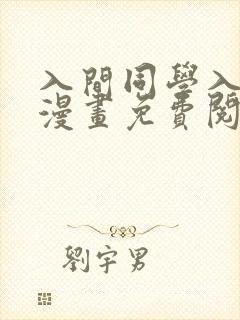 入間同學入
漫畫免費閱
劉宇男